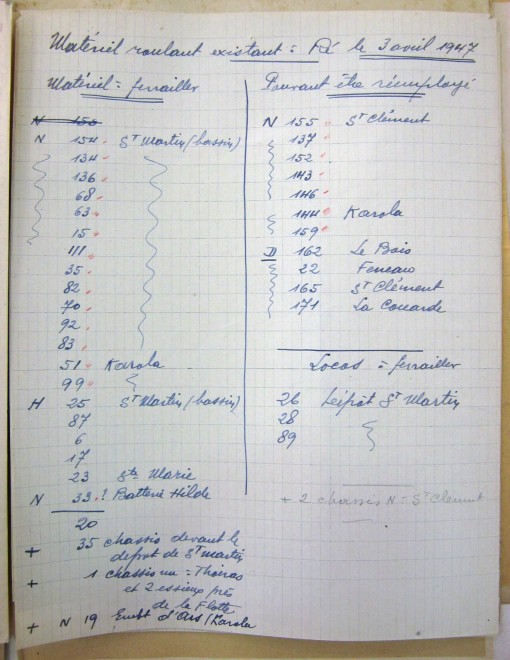 Matériel roulant existant : Ré le 3 avril 1947
Matériel = ferrailler
N 155
N 154 St Martin (bassin)
134
136
68
63
15
111
35
82
70
92
83
51 Karola
99
H 25 St Martin (bassin)
87
6
17
23 Ste Marie
N 33.? Batterie Hilde
20
+ 35 chassis devant le
depot de St Martin
+ 1 chassis nu = Thoiras
et 2 essieux près
de la Flotte
+ N 19 Embt d'Ars (Karola
Pouvant être réemployé
N 155 St Clément
137
152
143
146
144 Karola
159
D 162 Le Bois
22 Feneau
165 St Clément
171 La Couarde
Locos = ferrailler
26 Dépôt St Martin
28
89
+ 2 chassis N = St Clément